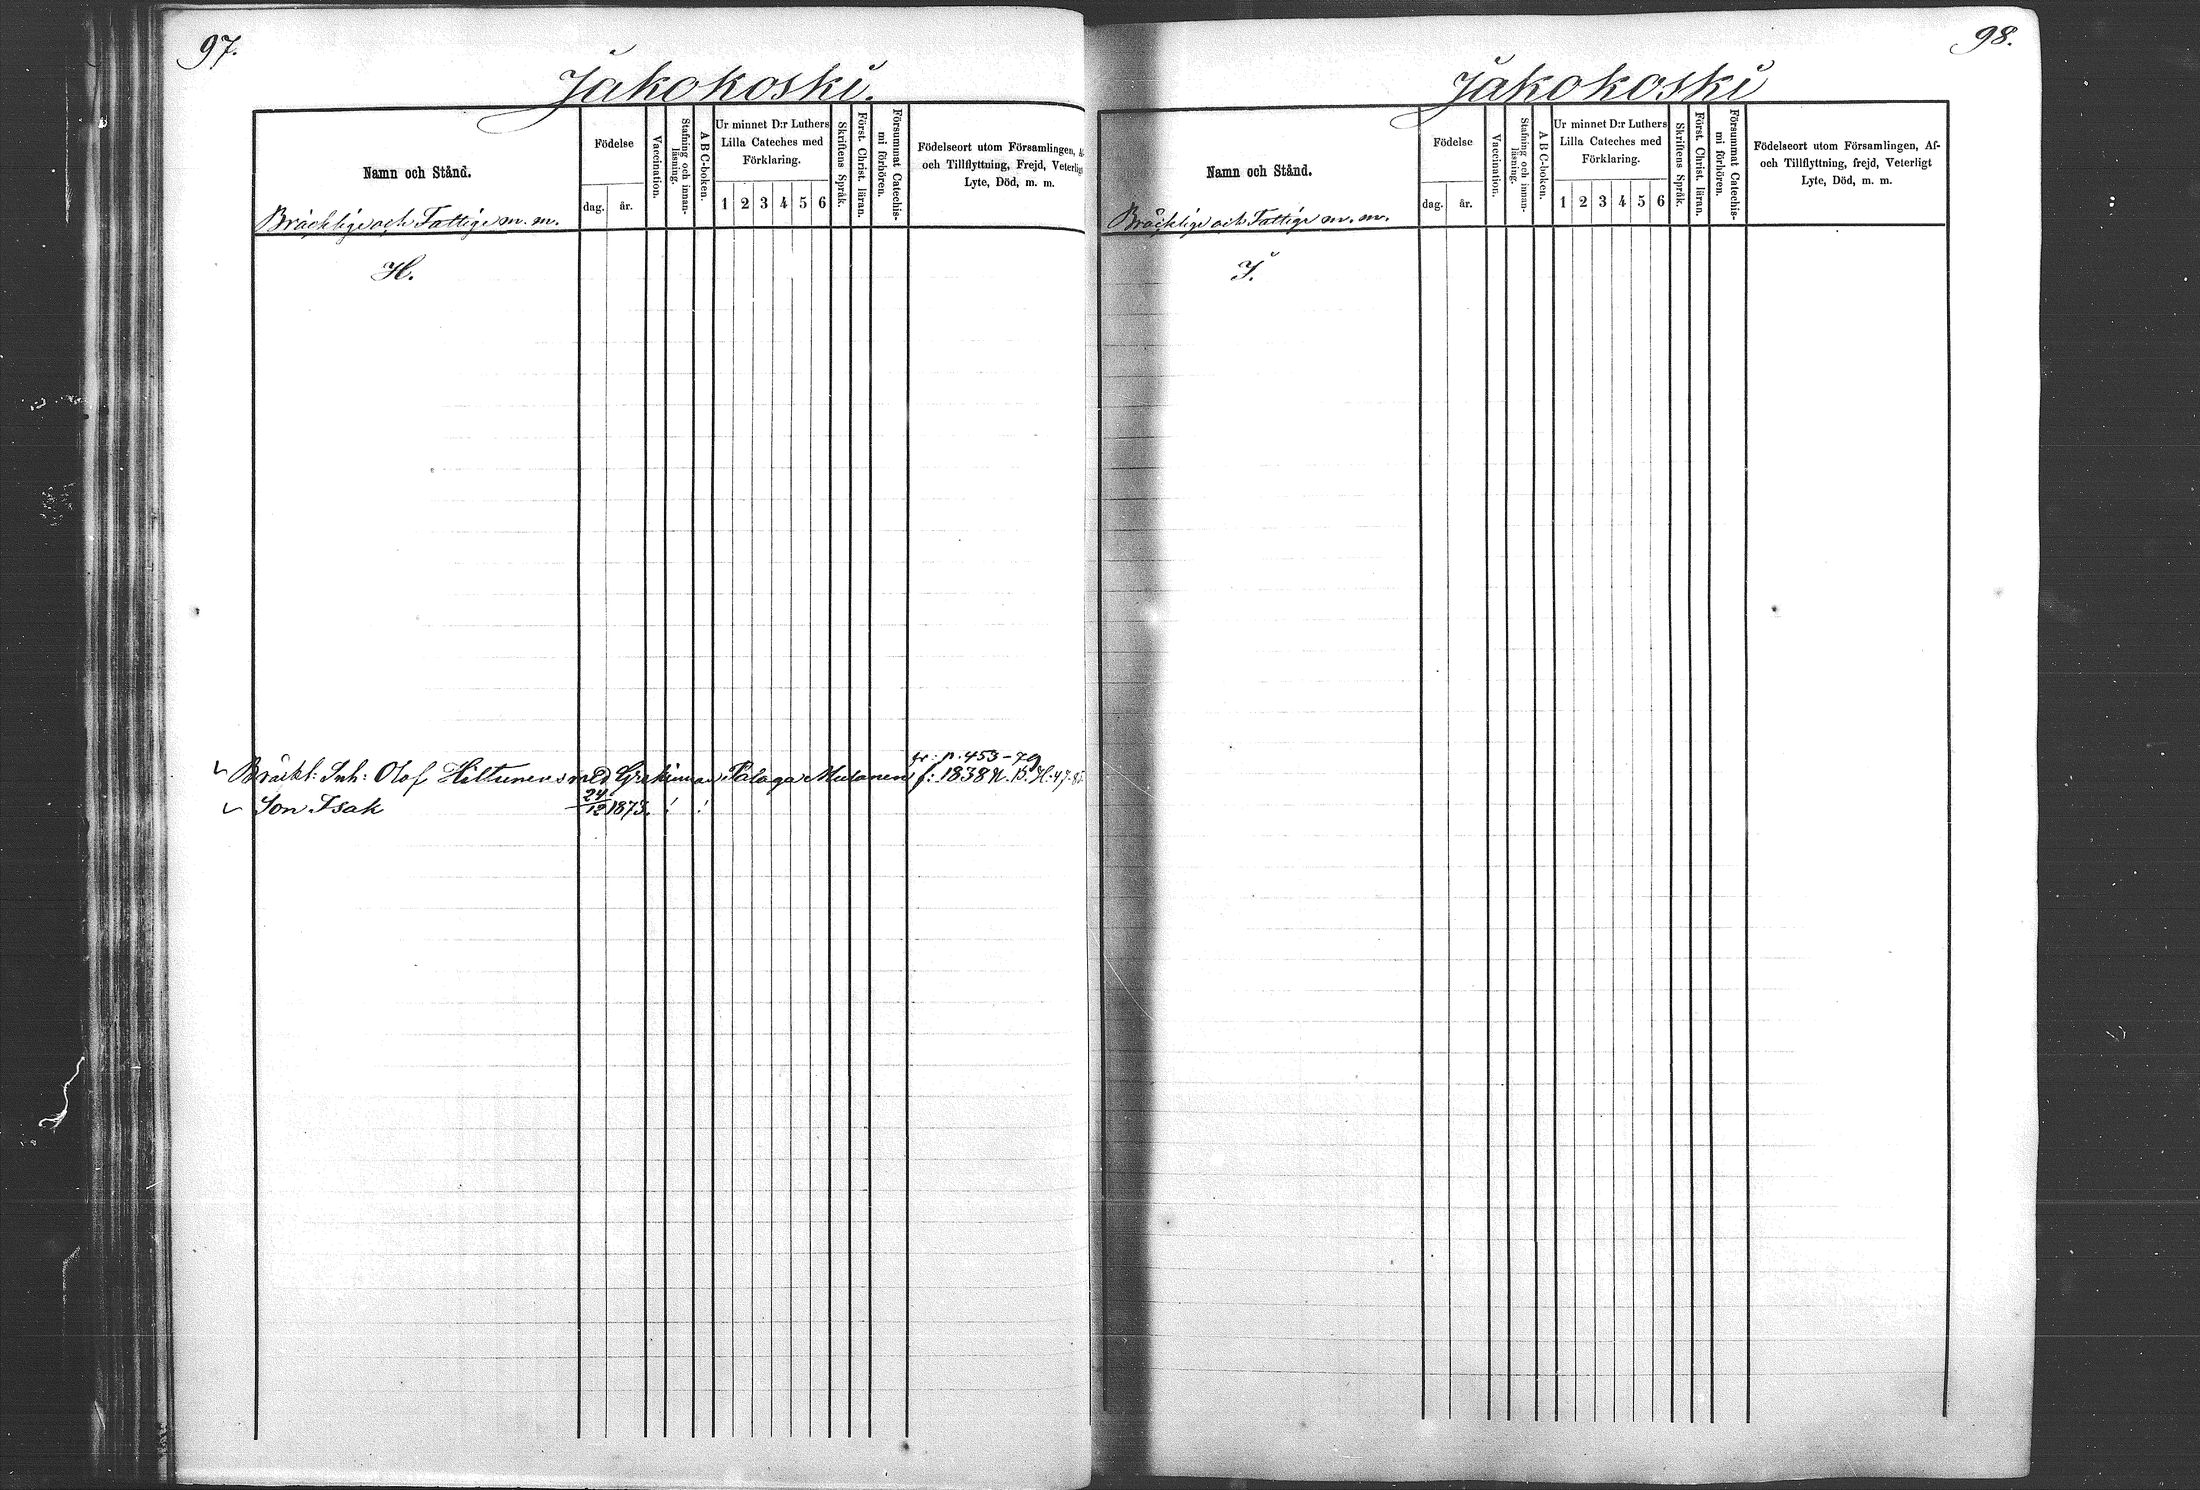 97.
Jakokoski.
Namn och Stånd.
Födelse
dag. år.
Vaccination.
Stafning och innan-
läsning.
A B C-boken.
Ur minnet D:r Luthers
Lilla Cateches med
Förklaring.
1 2 3 4 5 6
Skriftens Språk.
Först. Christ. läran.
Försummat Catechis-
mi förhören.
Födelseort utom Församlingen, A
och Tillflyttning, Frejd, Veterligt
Lyte, Död, m. m.
Bräcklige och Fattige m. m.
H.
fr: p. 453-79
Bräckl: Inh: Olof Hiltunens med Grekinnan Palaga Mutanen f: 1838
Son Isak 24/12 1873.
98.
Jakokoski
Namn och Stånd.
Födelse
dag. år.
Vaccination.
Stafning och innan-
läsning.
A B C-boken.
Ur minnet D:r Luthers
Lilla Cateches med
Förklaring.
1 2 3 4 5 6
Skriftens Språk.
Först. Christ. läran.
Försummat Catechis-
mi förhören.
Födelseort utom Församlingen, Af-
och Tillflyttning, frejd, Veterligt
Lyte, Död, m. m.
Bräcklige och Fattige m. m.
I.